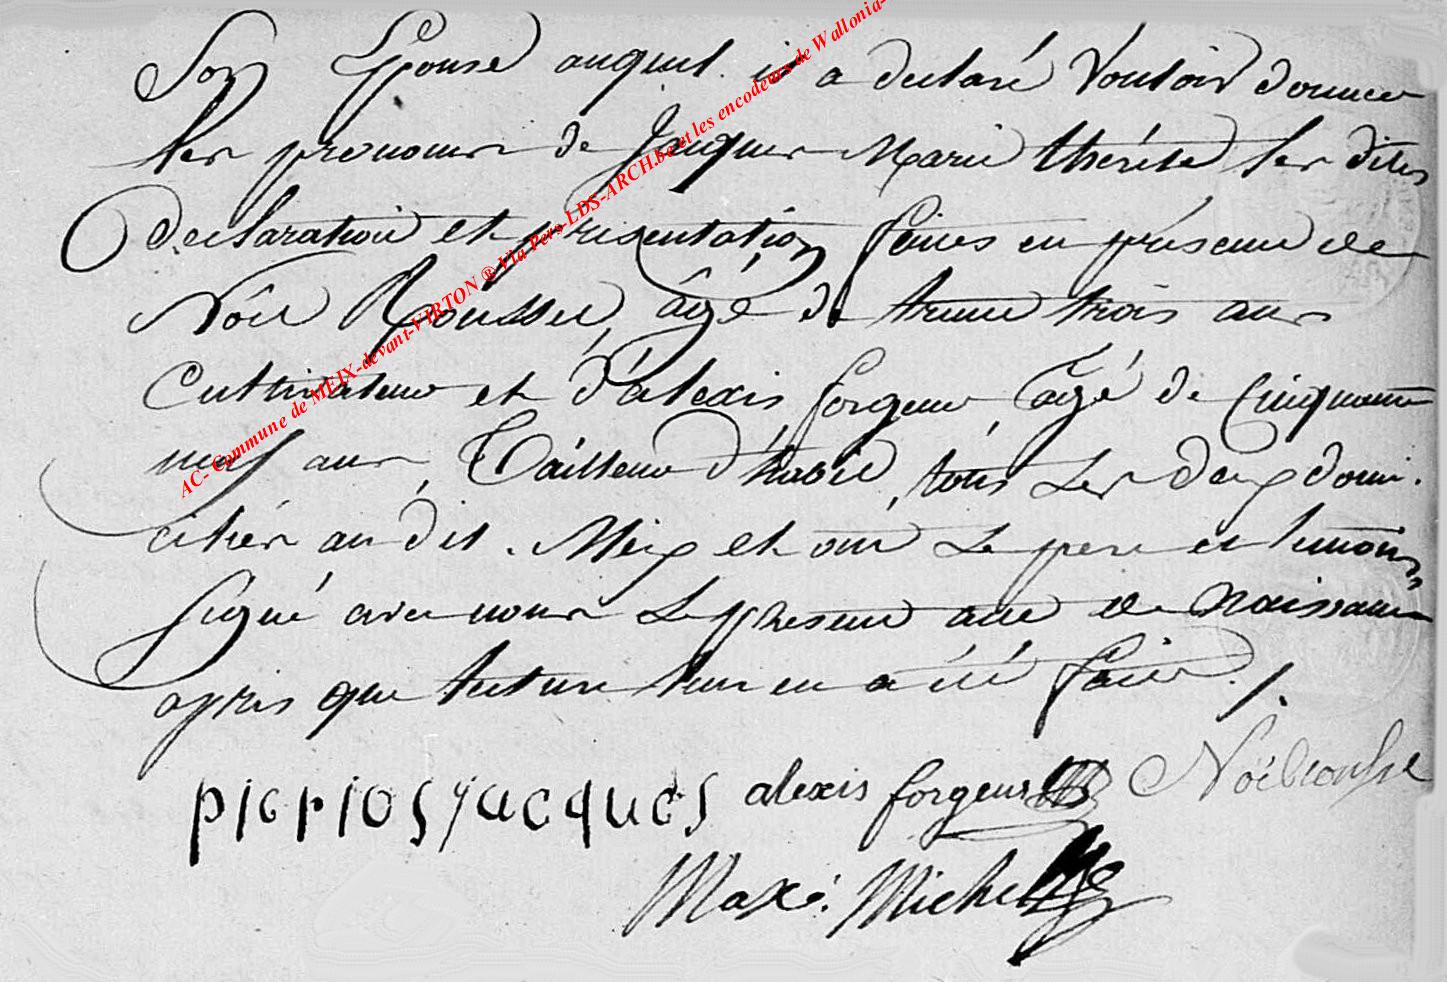 Son Epouse auquel il a declaré Vouloir donner
les prenoms de Jacques Marie thérése les dites
declaration et présentation faites en présence de
Noël Rousselle, âgé de trente trois ans
Cultivateur et d'alexis forgeur, âgé de Cinquante
neuf ans, Tailleur d'habit, tous les deux domi.
ciliés au dit. Meix et ont le pere et temoins
signé avec nous le present acte de Naissance
après que lecture leur en a été faite. /.
alexis forgeur
Maxé. Michel
AC- Commune de MEIX-devant-VIRTON ® Via Pero-LDS-ARCH.be et les encodeurs de Wallonia-